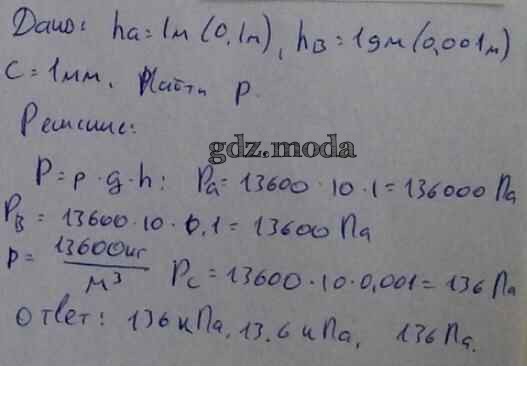 Дано: ha = 1м (0,1м), hв = 1дм (0,001м)
C = 1мм. Найти p.
Решение:
gdz.moda
P = p · g · h: Pa = 13600 · 10 · 1 = 136000 Па
PB = 13600 · 10 · 0,1 = 13600 Па
p = 13600кг/м³ Pc = 13600 · 10 · 0,001 = 136 Па
Ответ: 136 кПа, 13,6 кПа, 136 Па.